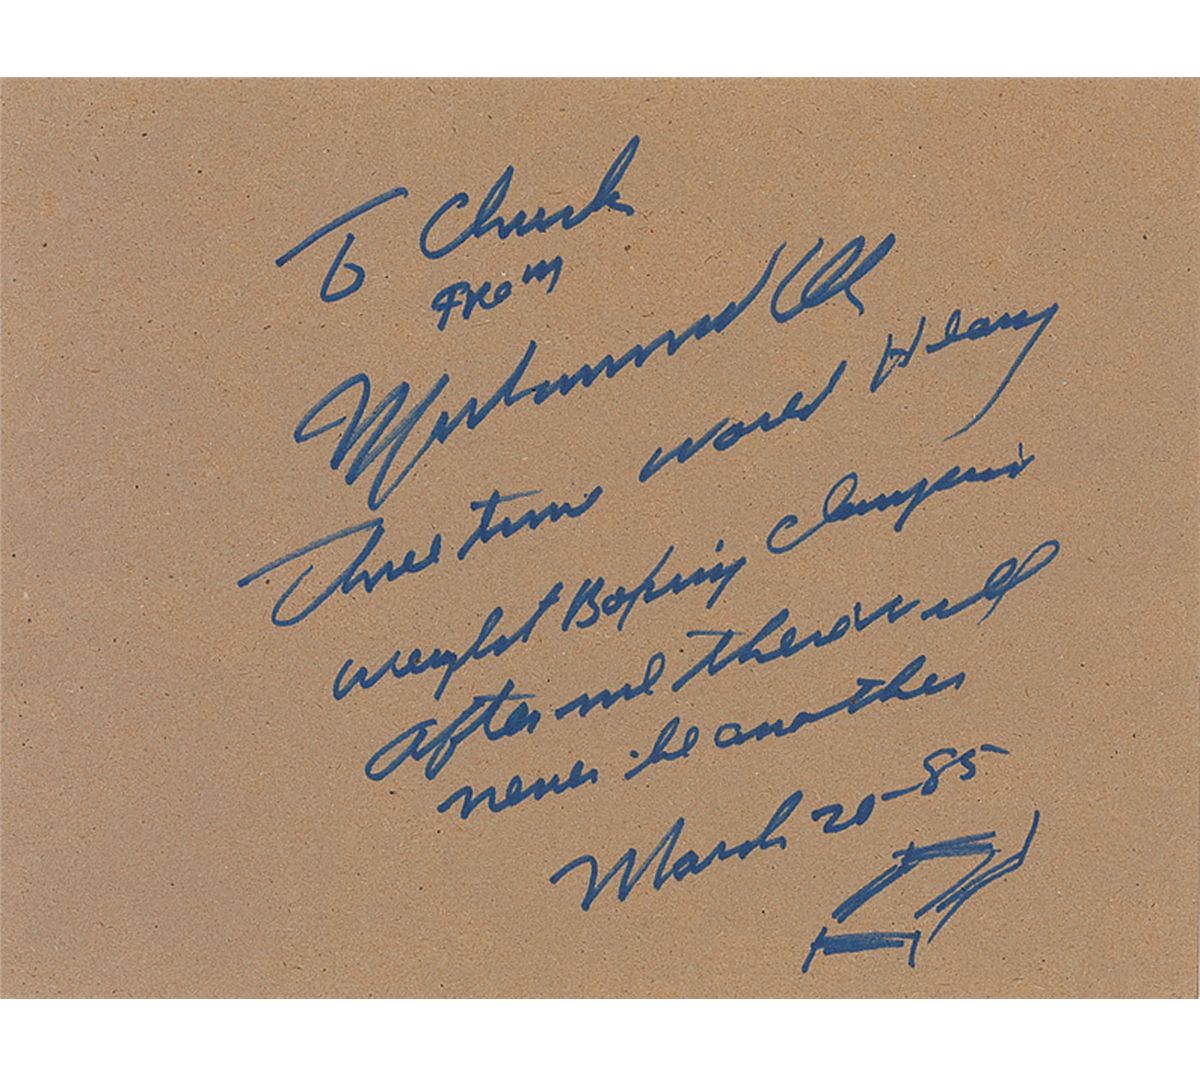 To Chuck
From
Muhammad Ali
Three time World Heavy
weight Boxing Champion
After me there will
never be another
March 20-85